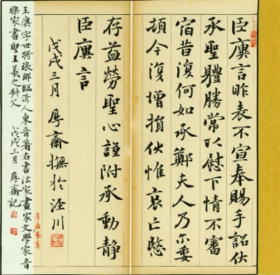 臣廙言昨表不宣奉賜手詔伏
承聖體勝常以慰下情不審
宿昔復何如承鄭夫人乃尒委
頓今復增損伏惟哀亡愍
存益勞聖心謹附承動靜
臣廙言
戊戌三月 厚齋撫於涇川
王廙字世將琅琊臨沂人東晉著名書法家畫家文學家音
樂家書聖王羲之叔父
戊戌三月 厚齋記